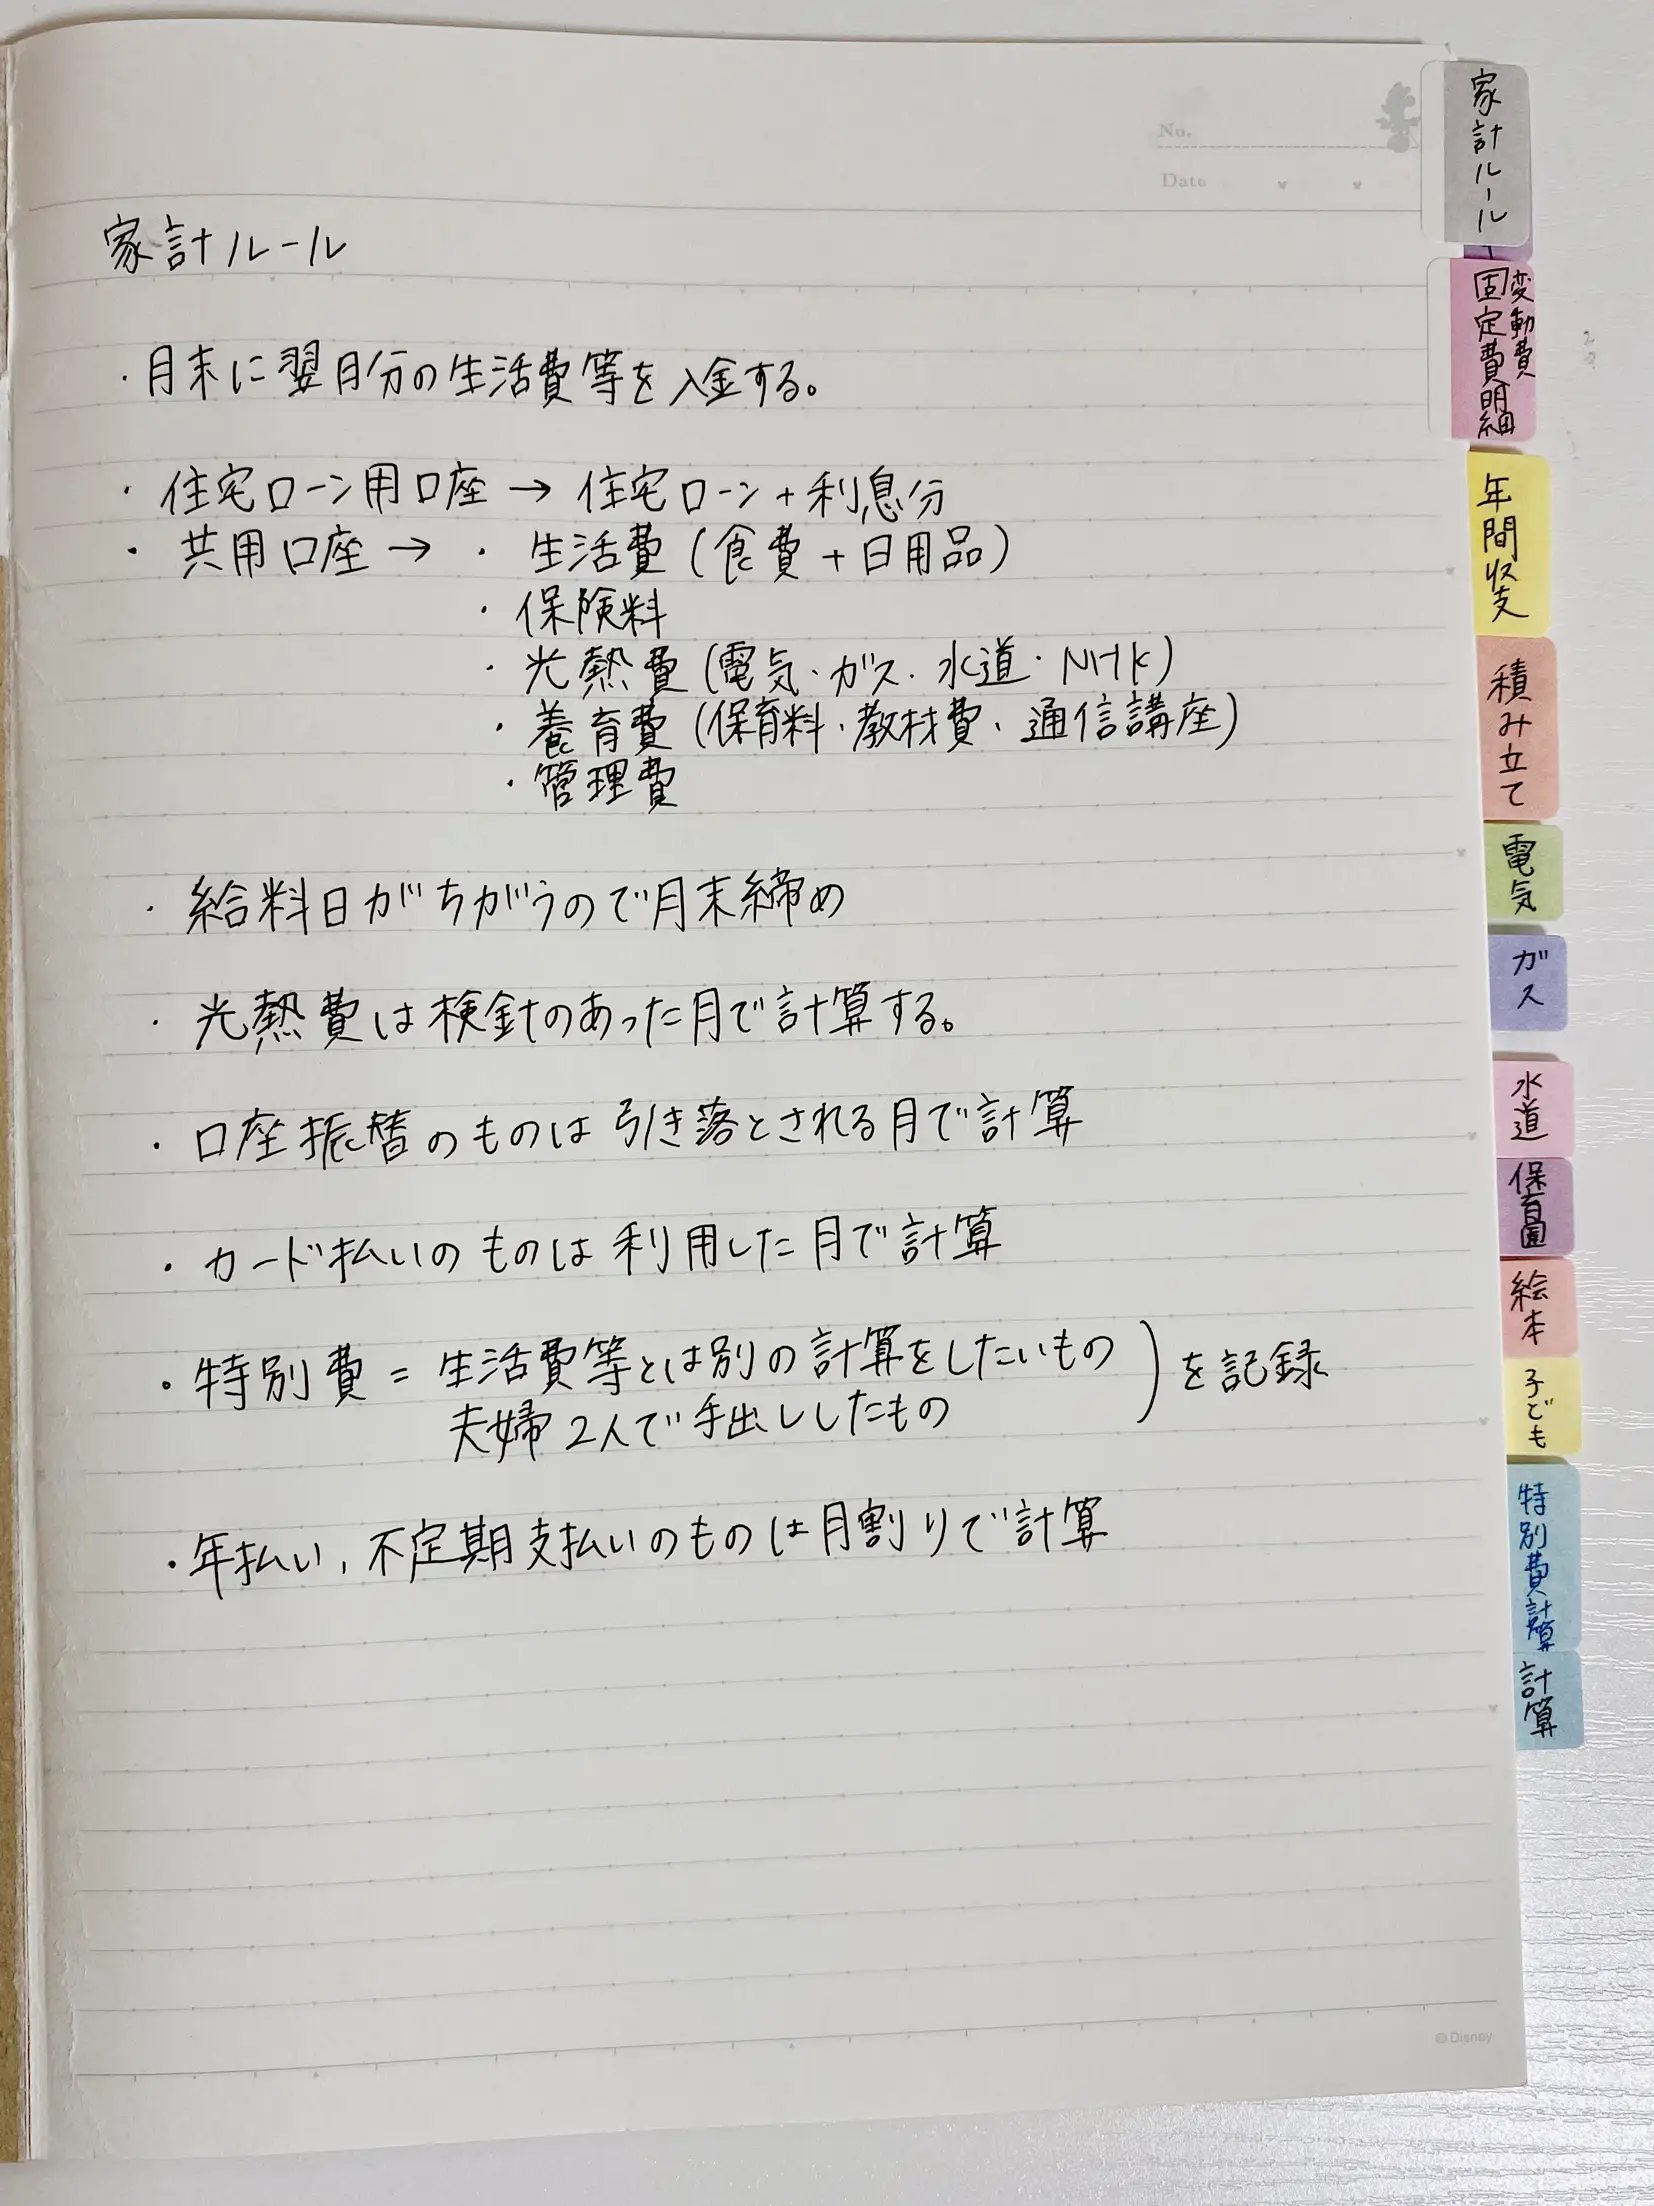 No.
Date
家計ルール
・月末に翌月分の生活費等を入金する。
・住宅ローン用口座→住宅ローン+利息分
・共用口座→・生活費(食費+日用品)
・保険料
・光熱費(電気・ガス・水道・NHK)
・養育費(保育料・教材費・通信講座)
・管理費
・給料日がちがうので月末締め
・光熱費は検針のあった月で計算する。
・口座振替のものは引き落とされる月で計算
・カード払いのものは利用した月で計算
・特別費=生活費等とは別の計算をしたいもの
夫婦2人で手出ししたもの
)を記録
・年払い、不定期支払いのものは月割りで計算
© Disney
家計ルール
変動費
固定費明細
年間収支
積み立て
電気
ガス
水道
保育園
絵本
子ども
特別費計算
計算